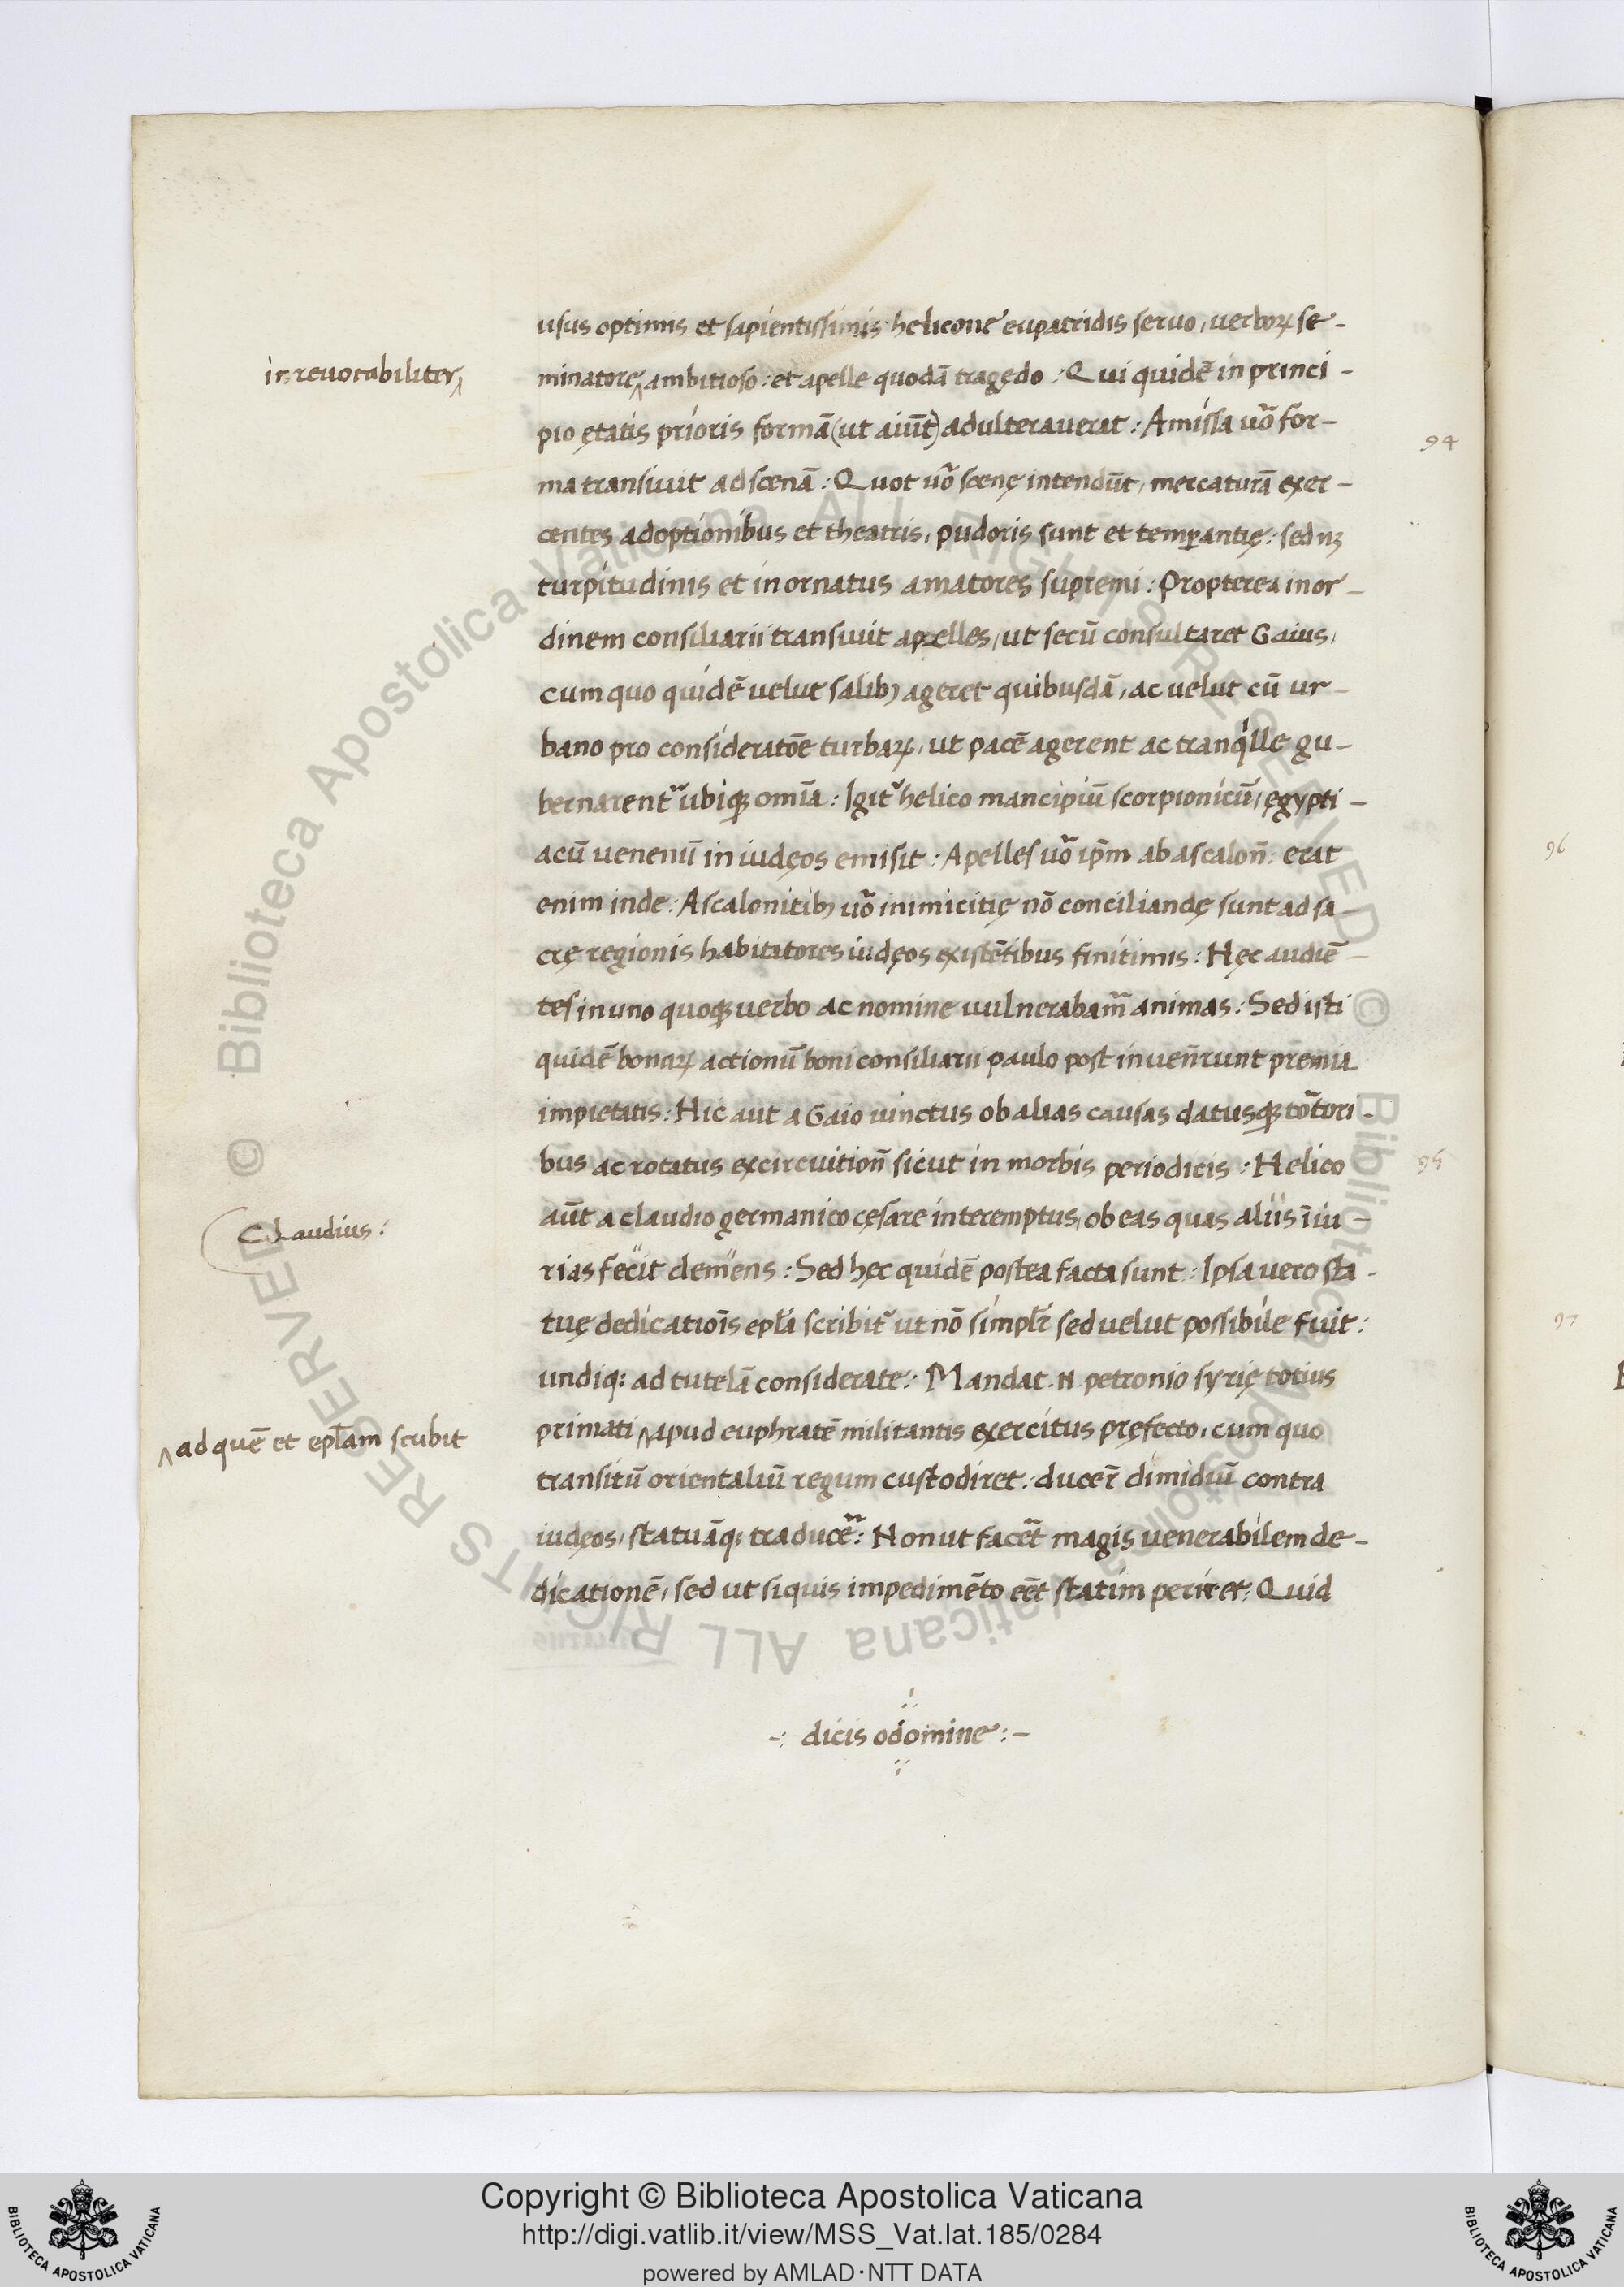 usus optimis et sapientissimis helicone eupatridis seruo, uerboꝝ se-
irreuocabiliter
minatore, ambitioso: et apelle quodā tragędo: Qui quidē in princi-
pio ętatis prioris formā (ut aiūt) adulterauerat: Amissa uo᷑ for-
94
ma transiuit ad scenā: Quot uo᷑ scenę intendūt, mercaturā exer-
centes adoptionibus et theatris, pudoris sunt et temꝑantię: sed nꝫ
turpitudinis et inornatus amatores supremi: Propterea in or-
dinem consiliarii transiuit apelles, ut secū consultaret Gaius,
cum quo quidē uelut salibꝫ ageret quibusdā, ac uelut cū ur-
bano pro consideratōe turbaꝝ, ut pacē agerent ac tranq̓lle gu-
bernarent᷑ ubiqꝫ omīa: Igit᷑ helico mancipiū scorpionicū, ęgypti-
acū uenenū in iudęos emisit: Apelles uo᷑ ip̄m ab ascalon̄: erat
enim inde: Ascalonitibꝫ uo᷑ inimicitię nō conciliandę sunt ad sa-
crę regionis habitatores iudęos existētibus finitimis: Hęc audiē-
tes in uno quoqꝫ uerbo ac nomine uulnerabam᷑ animas: Sed isti
quidē bonaꝝ actionū boni consiliarii paulo post inuen̄runt premia
impietatis: Hic aut a Gaio uinctus ob alias causas datusqꝫ to᷑tori-
bus ac rotatus excircuition̄ sicut in morbis periodicis: Helico
95
aūt a claudio germanico cęsare interemptus, ob eas quas aliis īiu-
Claudius:
rias fecit demens: Sed hęc quidē postea facta sunt: Ipsa uero sta-
tuę dedicatiōis epl̄a scribit᷑ ut nō simpl̄r sed uelut possibile fuit:
undiqꝫ ad tutelā considerate: Mandat .n. petronio syrię totius
primati ‸ apud euphratē militantis exercitus pręfecto, cum quo
‸ ad quē et epl̄am scribit
transitū orientaliū regum custodiret: ducer̄ dimidiū contra
iudęos, statuāqꝫ traducer᷑: Non ut facer̄t magis uenerabilem de-
dicationē, sed ut siquis impedimēto eēt statim periret: Quid
-: dicis o domine :-
96
97
Copyright © Biblioteca Apostolica Vaticana
http://digi.vatlib.it/view/MSS_Vat.lat.185/0284
powered by AMLAD·NTT DATA
BIBLIOTECA APOSTOLICA VATICANA
BIBLIOTECA APOSTOLICA VATICANA
© Biblioteca Apostolica Vaticana ALL RIGHTS RESERVED © Biblioteca Apostolica Vaticana ALL RIGHTS RESERVED